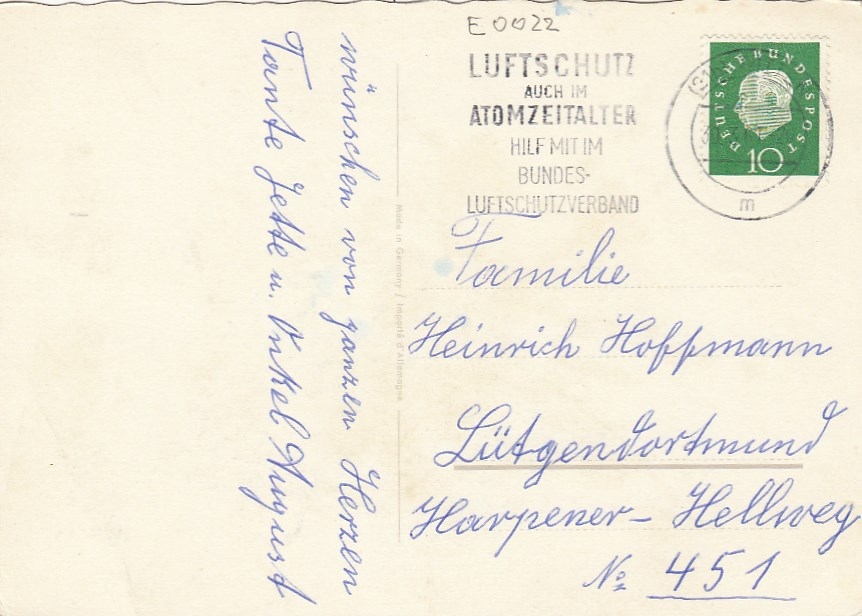 E0022
LUFTSCHUTZ
AUCH IM
ATOMZEITALTER
HILF MIT IM
BUNDES-
LUFTSCHUTZVERBAND
DEUTSCHE BUNDESPOST
10
m
wünschen von ganzen Herzen
Tante Jette u. Onkel August
Made in Germany / Importé d'Allemagne
Familie
Heinrich Hoffmann
Lütgendortmund
Harpener-Hellweg
No 451